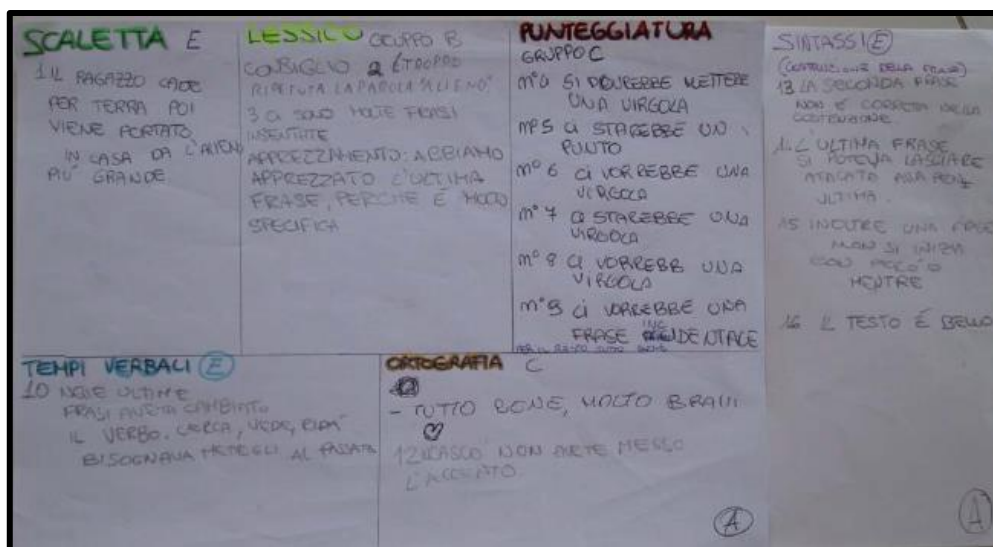 SCALETTA E
1 IL RAGAZZO CADE
PER TERRA POI
VIENE PORTATO
IN CASA DA L'ALIENO
PIÙ GRANDE
LESSICO GRUPPO B
CONSIGLIO 2 È TROPPO
RIPETUTA LA PAROLA "ALIENO"
3 CI SONO MOLTE FRASI
INSENTITE
APPREZZAMENTO: ABBIAMO
APPREZZATO L'ULTIMA
FRASE, PERCHÉ È MOLTO
SPECIFICA
PUNTEGGIATURA
GRUPPO C
n°4 SI DOVREBBE METTERE
UNA VIRGOLA
n°5 CI STAREBBE UN
PUNTO
n°6 CI VORREBBE UNA
VIRGOLA
n°7 CI STAREBBE UNA
VIRGOLA
n°8 CI VORREBB UNA
VIRGOLA
n°9 CI VORREBBE UNA
FRASE INCIDENTALE
PER IL RESTO TUTTO BENE
SINTASSI E
(COSTRUZIONE DELLA FRASE)
13 LA SECONDA FRASE
NON È CORRETTA NELLA
COSTRUZIONE
14 L'ULTIMA FRASE
SI POTEVA LASCIARE
ATACATA ALLA PENULTIMA.
15 INOLTRE UNA FRASE
NON SI INIZIA
CON PERÒ O
MENTRE
16 IL TESTO È BELLO
TEMPI VERBALI E
10 NELLE ULTIME
FRASI AVETE CAMBIATO
IL VERBO. CERCA, VEDE,
BISOGNAVA METTERLI AL PASSATO
ORTOGRAFIA C
- TUTTO BENE, MOLTO BRAVI
12 CASCÒ NON AVETE MESSO
L'ACCENTO
A
A